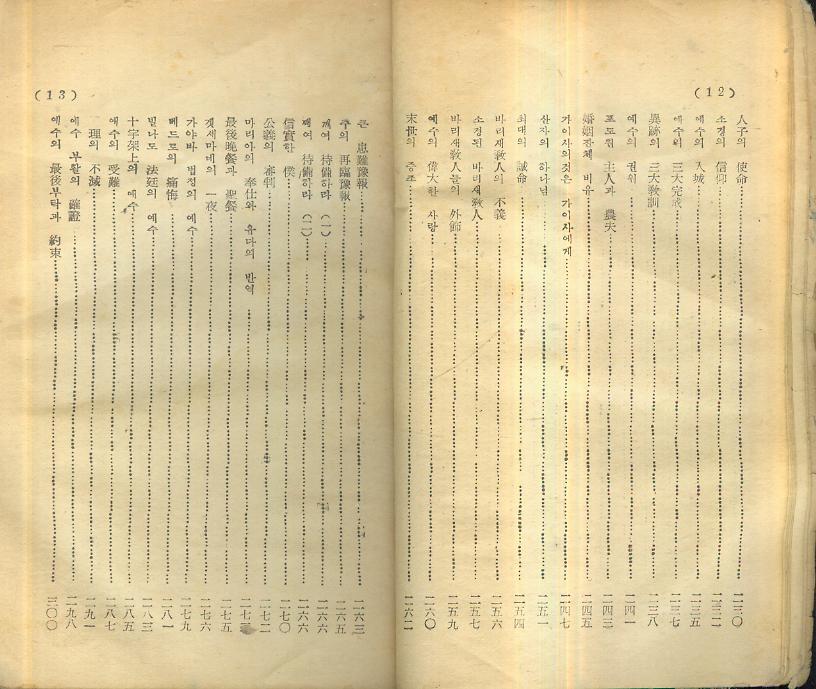 (12)
人子의 使命 二三〇
소경의 信仰 二三二
예수의 入城 二三五
예수의 三大完成 二三七
異跡의 三大敎訓 二三八
예수의 권위 二四一
포도원 主人과 農夫 二四三
婚姻잔체 비유 二四五
가이사의것은 가이사에게 二四七
산자의 하나님 二五一
최대의 誡命 二五四
바리새敎人의 不義 二五六
소경된 바리새敎人 二五七
바리새敎人들의 外飾 二五九
예수의 偉大한 사랑 二六〇
末世의 증조 二六二
(13)
큰 患難豫報 二六三
주의 再臨豫報 二六五
깨여 待備하라 (一) 二六六
깨여 待備하라 (二) 二六六
信實한 僕 二七〇
公義의 審判 二七二
마리아의 奉仕와 유다의 반역 二七三
最後晩餐과 聖餐 二七五
겟세마네의 一夜 二七六
가야바 법정의 예수 二七九
베드로의 痛悔 二八一
빌나도 法廷의 예수 二八三
十字架上의 예수 二八五
예수의 受難 二八七
理의 不滅 二九一
예수 부활의 確證 二九八
예수의 最後부탁과 約束 三〇〇